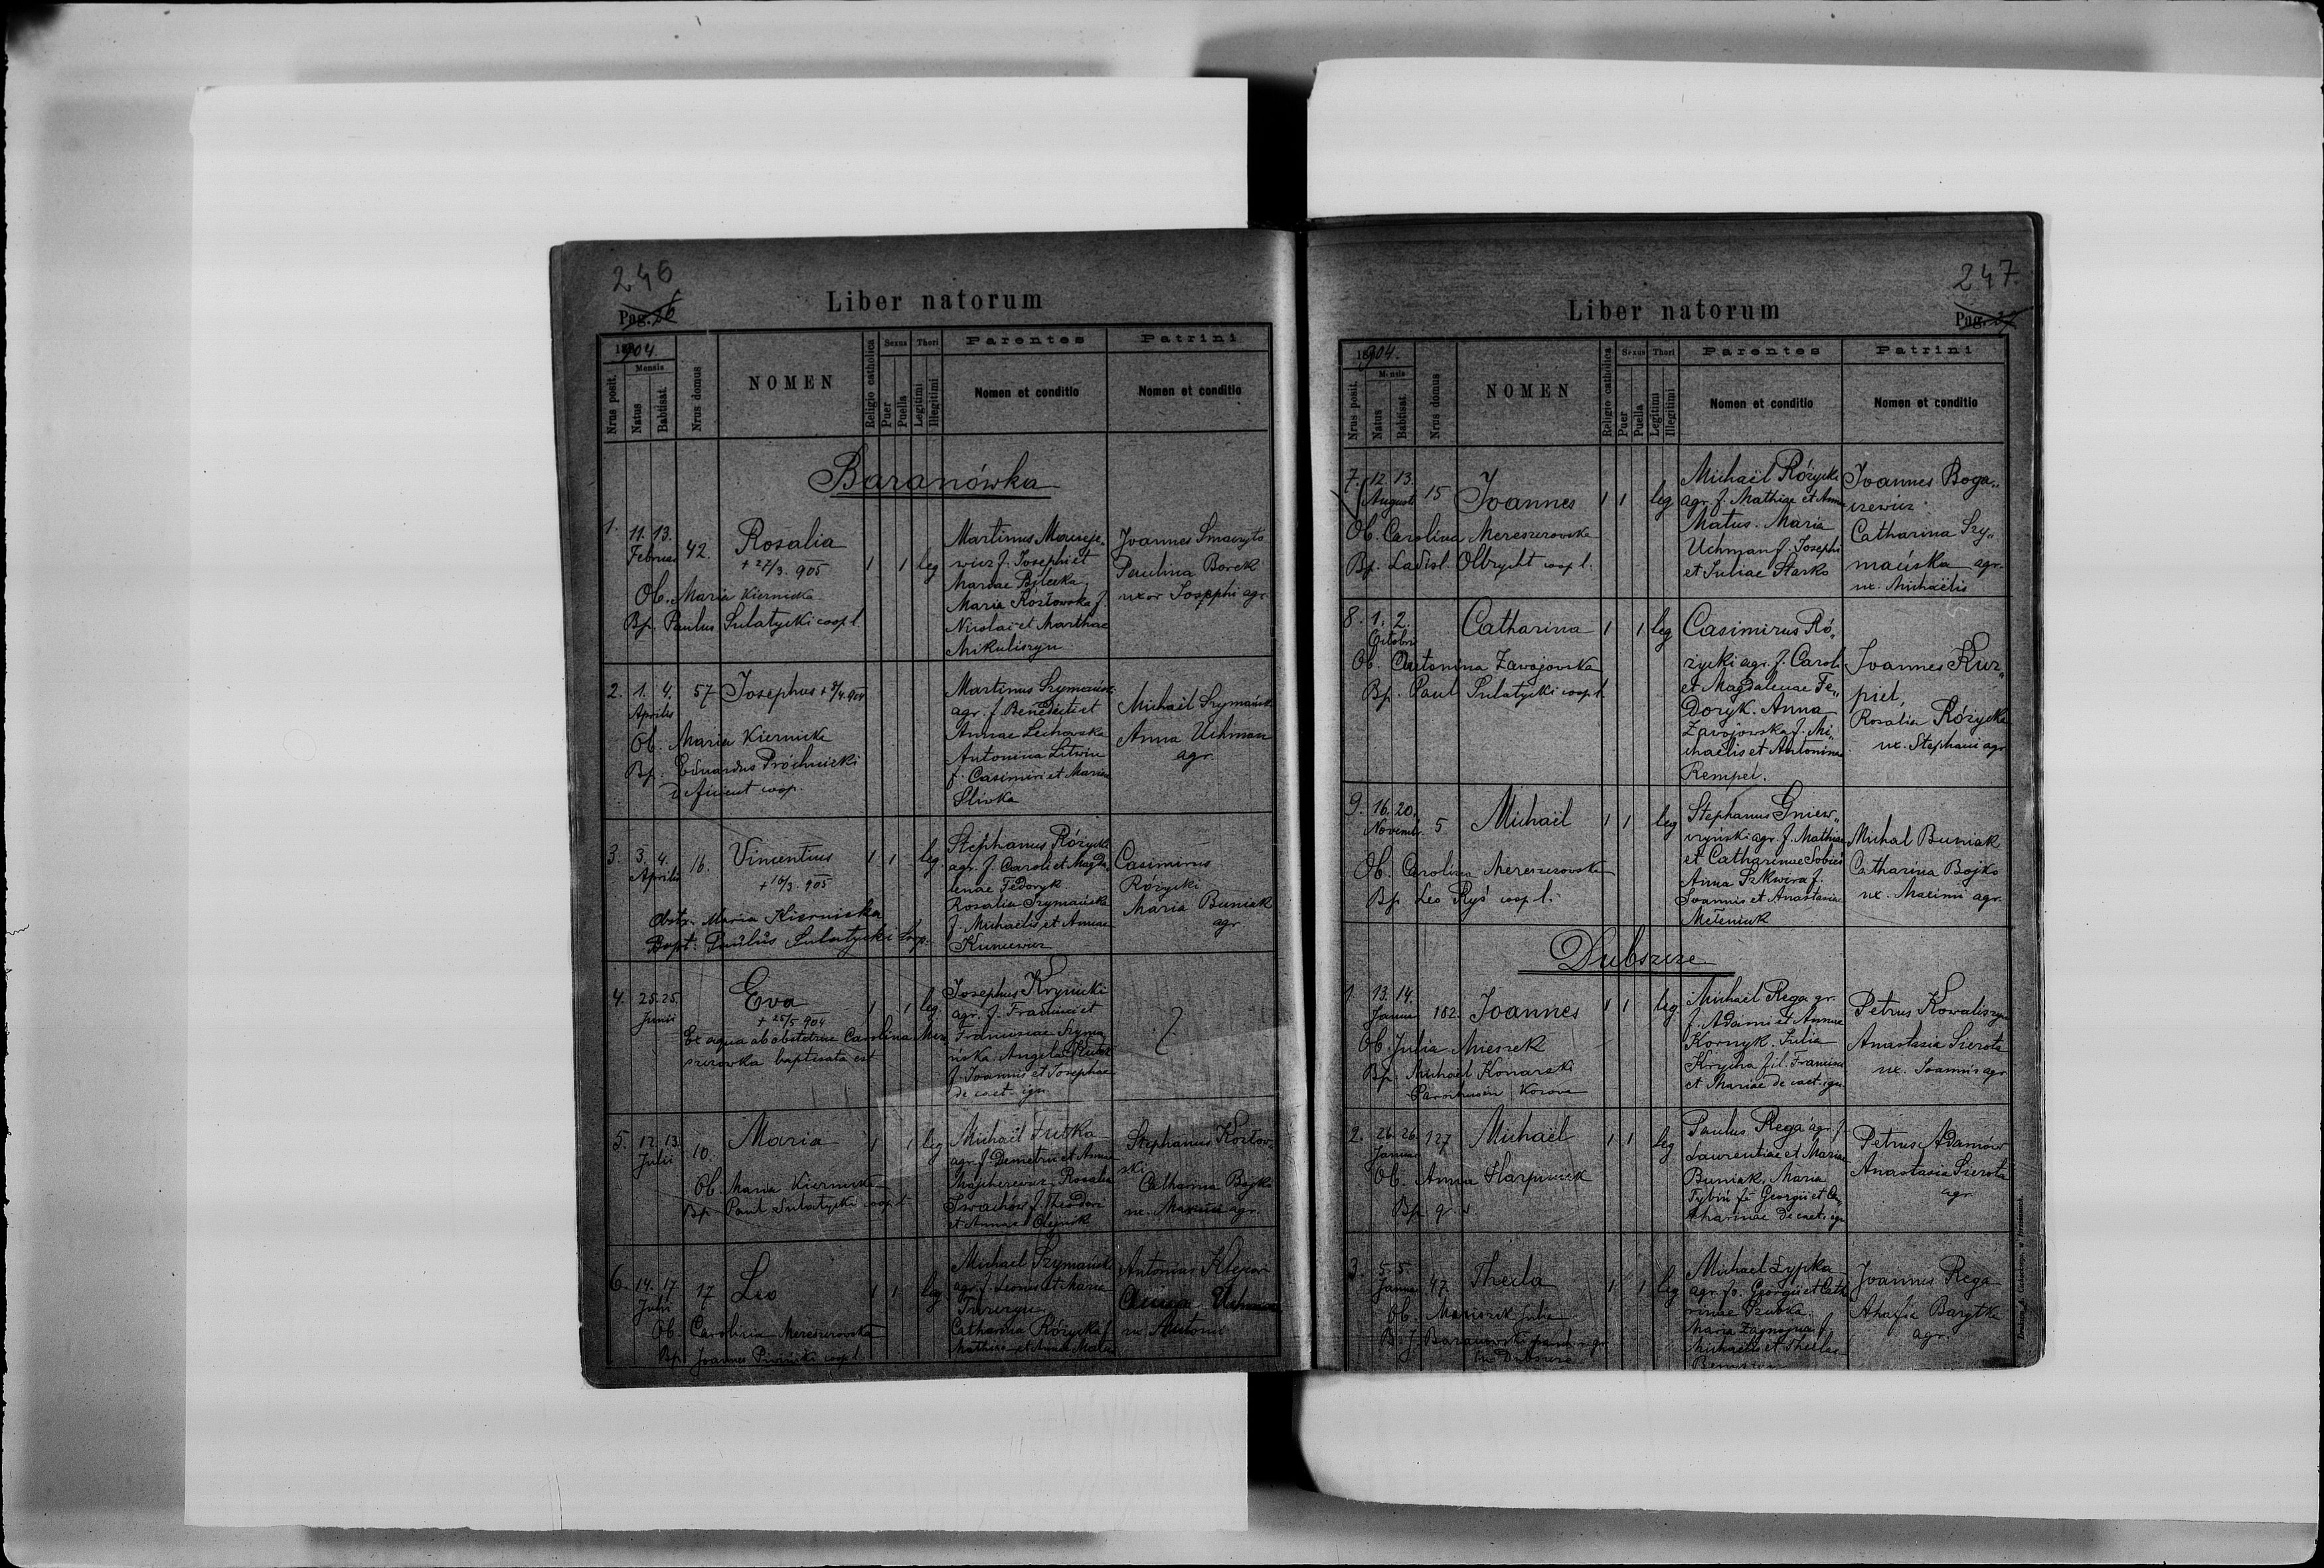 246
Pag. 26
Liber natorum
1904.
Mensis
Nrus posit.
Natus
Babtisat.
Nrus domus
NOMEN
Religio catholica
Sexus
Puer
Puella
Thori
Legitimi
Illegitimi
Parentes
Nomen et conditio
Patrini
Nomen et conditio
Baranówka
1. 11. 13. Februar 42. Rosalia 1 1 leg
+ 27/3. 905
Ob. Maria Kiernicka
Bp. Paulus Sulatycki coop l.
Martinus
f. Josephi et
Mariae
Maria Kozłowska f.
Nicolai et Marthae
Mikuliszyn
Joannes
Paulina Borek
uxor Josephi agr.
2. 1. 4. Aprilis 57 Josephus + 9/4 904
Ob. Maria Kiernicka
Bp. Eduardus Prochnicki
coop.
Martinus Szymański
agr. f. Benedicti et
Annae Lechowska
Antonina Litwin
f. Casimiri et Mariae
Sliwka
Michaël Szymański
Anna Uchman
agr.
3. 3. 4. Aprilis 16. Vincentius 1 1 leg.
+ 16/3. 905
Obstr. Maria Kiernicka
Bapt. Paulus Sulatycki Coop.
Stephanus Różycki
agr. f. Caroli et Magda
lenae Fedoryk
Rosalia Szymańska
f. Michaëlis et Annae
Kuncewicz
Casimirus
Różycki
Maria Buniak
agr
4. 25. 25. Junii Eva 1 1 leg.
+ 25/5 904
Ex aqua ab obstetrice Carolina Meresz
szurowka baptisata est
Josephus Krynicki
agr. f. Francisci et
Franciscae Szyma
ńska. Angela
f. Joannis et Josephae
de caet. ign.
5. 12. 13. Julii 10. Maria 1 1 leg
Ob. Maria Kiernicka
Bp. Paul Sulatycki coop l.
Michaël Futka
agr. f. Demetrii et Annae
Rosalia
Iwachów f. Theodori
et Annae Olejnik
Stephanus Kozłow
ski
Catharina Bojko
ux. Maximi agr.
6. 14. 17 Julii 17 Leo 1 1 leg
Ob. Carolina Mereszurowska
Bp. Joannes coop l.
Michael Szymański
agr. f. et Mariae
Catharina Różycka f.
Mathiae et Annae Matus
Antonius
ux. Antonii
247.
Pag. 27
Liber natorum
1904.
Mensis
Nrus posit.
Natus
Babtisat.
Nrus domus
NOMEN
Religio catholica
Sexus
Puer
Puella
Thori
Legitimi
Illegitimi
Parentes
Nomen et conditio
Patrini
Nomen et conditio
7. 12. 13. Augusti 15 Joannes 1 1 leg
Ob. Carolina Mereszurowska
Bp. Ladisl. Olbrycht coop l.
Michaël Różycki
agr. f. Mathiae et Annae
Matus. Maria
Uchman f. Josephi
et Juliae Starko
Joannes Boga„
czewicz
Catharina Szy„
mańska agr.
ux. Michaëlis
8. 1. 2. Octobris Catharina 1 1 leg
Ob. Antonina Zawojowska
Bp. Paul Sulatycki coop l.
Casimirus Ró„
życki agr. f. Caroli
et Magdalenae Fe„
doryk. Anna
Zawojowska f. Mi„
chaëlis et Antoninae
Rempel.
Joannes Kur„
piel,
Rosalia Różycka
ux. Stephani agr
9. 16. 20. Novemb. 5 Michaël 1 1 leg
Ob. Carolina Mereszurowska
Bp. Leo Ryś coop l.
Stephanus Gniew„
czyński agr. f. Mathiae
et Catharinae
Anna Szkwira f.
Joannis et Anastasiae
Meleniuk
Michal Buniak
Catharina Bojko
ux. Maximi agr.
Dubszcze
1 13. 14. Januar 182. Joannes 1 1 leg.
Ob. Julia Mieszek
Bp. Michaël Konarski
Parochus in Kozowa
Michaël Rega gr.
f. Adami et Annae
Kornyk. Julia
Krycha fil. Francisci
et Mariae de caet. ign
Petrus Kowaliszyn
Anastasia Sierota
ux. Joannis agr
2. 26. 26. Januar 127 Michaël 1 1 leg
Ob. Anna Harpiniuk
Bp. q. s.
Paulus Rega agr. f.
Laurentiae et Mariae
Buniak, Maria
f. Georgii et Ca
tharinae de caet. ign
Petrus Adamów
Anastasia Sierota
agr.
3. 5. 5. Januar 47. Thecla 1 1 leg
Ob. Julia
B. J. Baranowski
in Dubszcze
Michael Łypka
agr. f. Georgii et Cath
arinae
Maria f.
Michaelis et Theclae
Joannes Rega
Ahafia Barytka
agr.